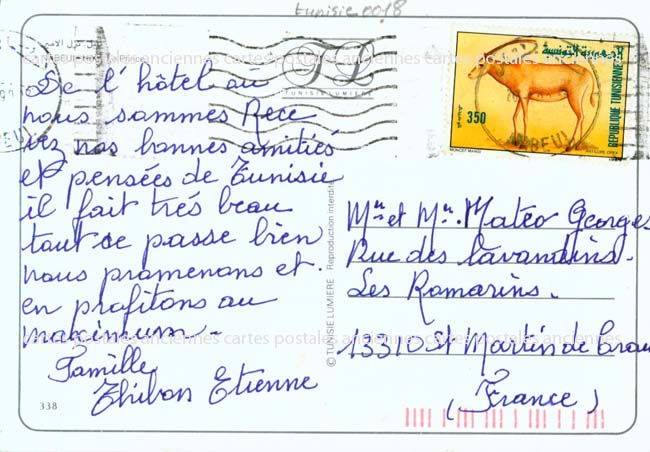 tunisie 0018
cartes postales anciennes cartes postales anciennes cartes postales anciennes
TUNISIE LUMIERE
350
REPUBLIQUE TUNISIENNE
الجمهورية التونسية
De l'hôtel ou
nous sommes Rece
vez nos bonnes amitiés
et pensées de Tunisie
il fait très beau
tout se passe bien
nous promenons et
en profitons au
maximum -
Famille
Thibon Etienne
338
© TUNISIE LUMIERE Reproduction interdite
Mr et Mme Mateo Georges
Rue des lavandins.
Les Romarins.
13310 St Martin de Crau
(France)